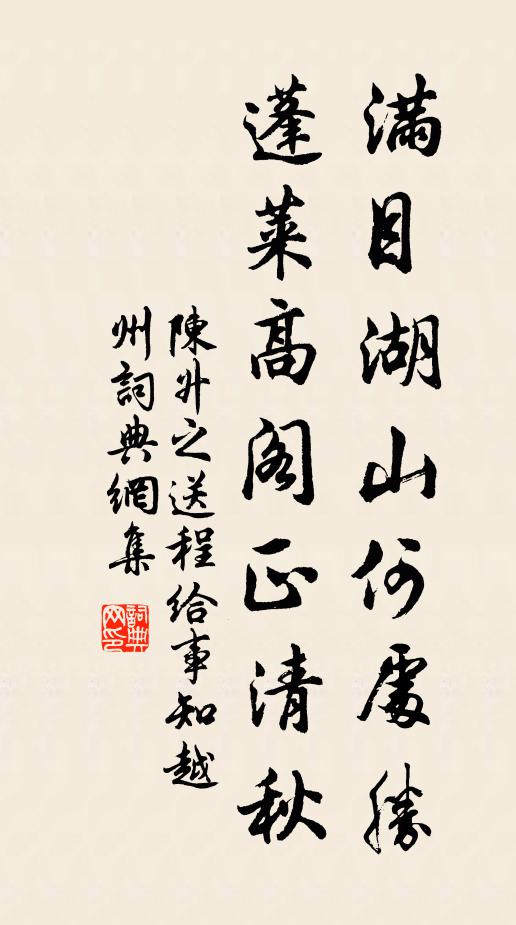 滿目湖山何處勝
蓬萊高阁正清秋
陳升之送程给事知越
州詞典網集
詞典
网印